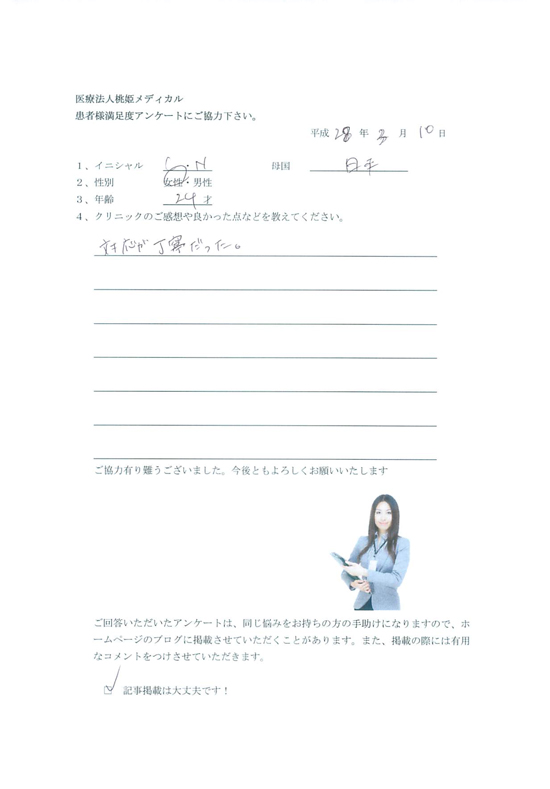 医療法人桃姫メディカル
患者様満足度アンケートにご協力下さい。
平成 28 年 3 月 10 日
1、イニシャル C・N 母国 日本
2、性別 女性・男性
3、年齢 24才
4、クリニックのご感想や良かった点などを教えてください。
対応が丁寧だった。
ご協力有り難うございました。今後ともよろしくお願いいたします
ご回答いただいたアンケートは、同じ悩みをお持ちの方の手助けになりますので、ホ
ームページのブログに掲載させていただくことがあります。また、掲載の際には有用
なコメントをつけさせていただきます。
☑ 記事掲載は大丈夫です！